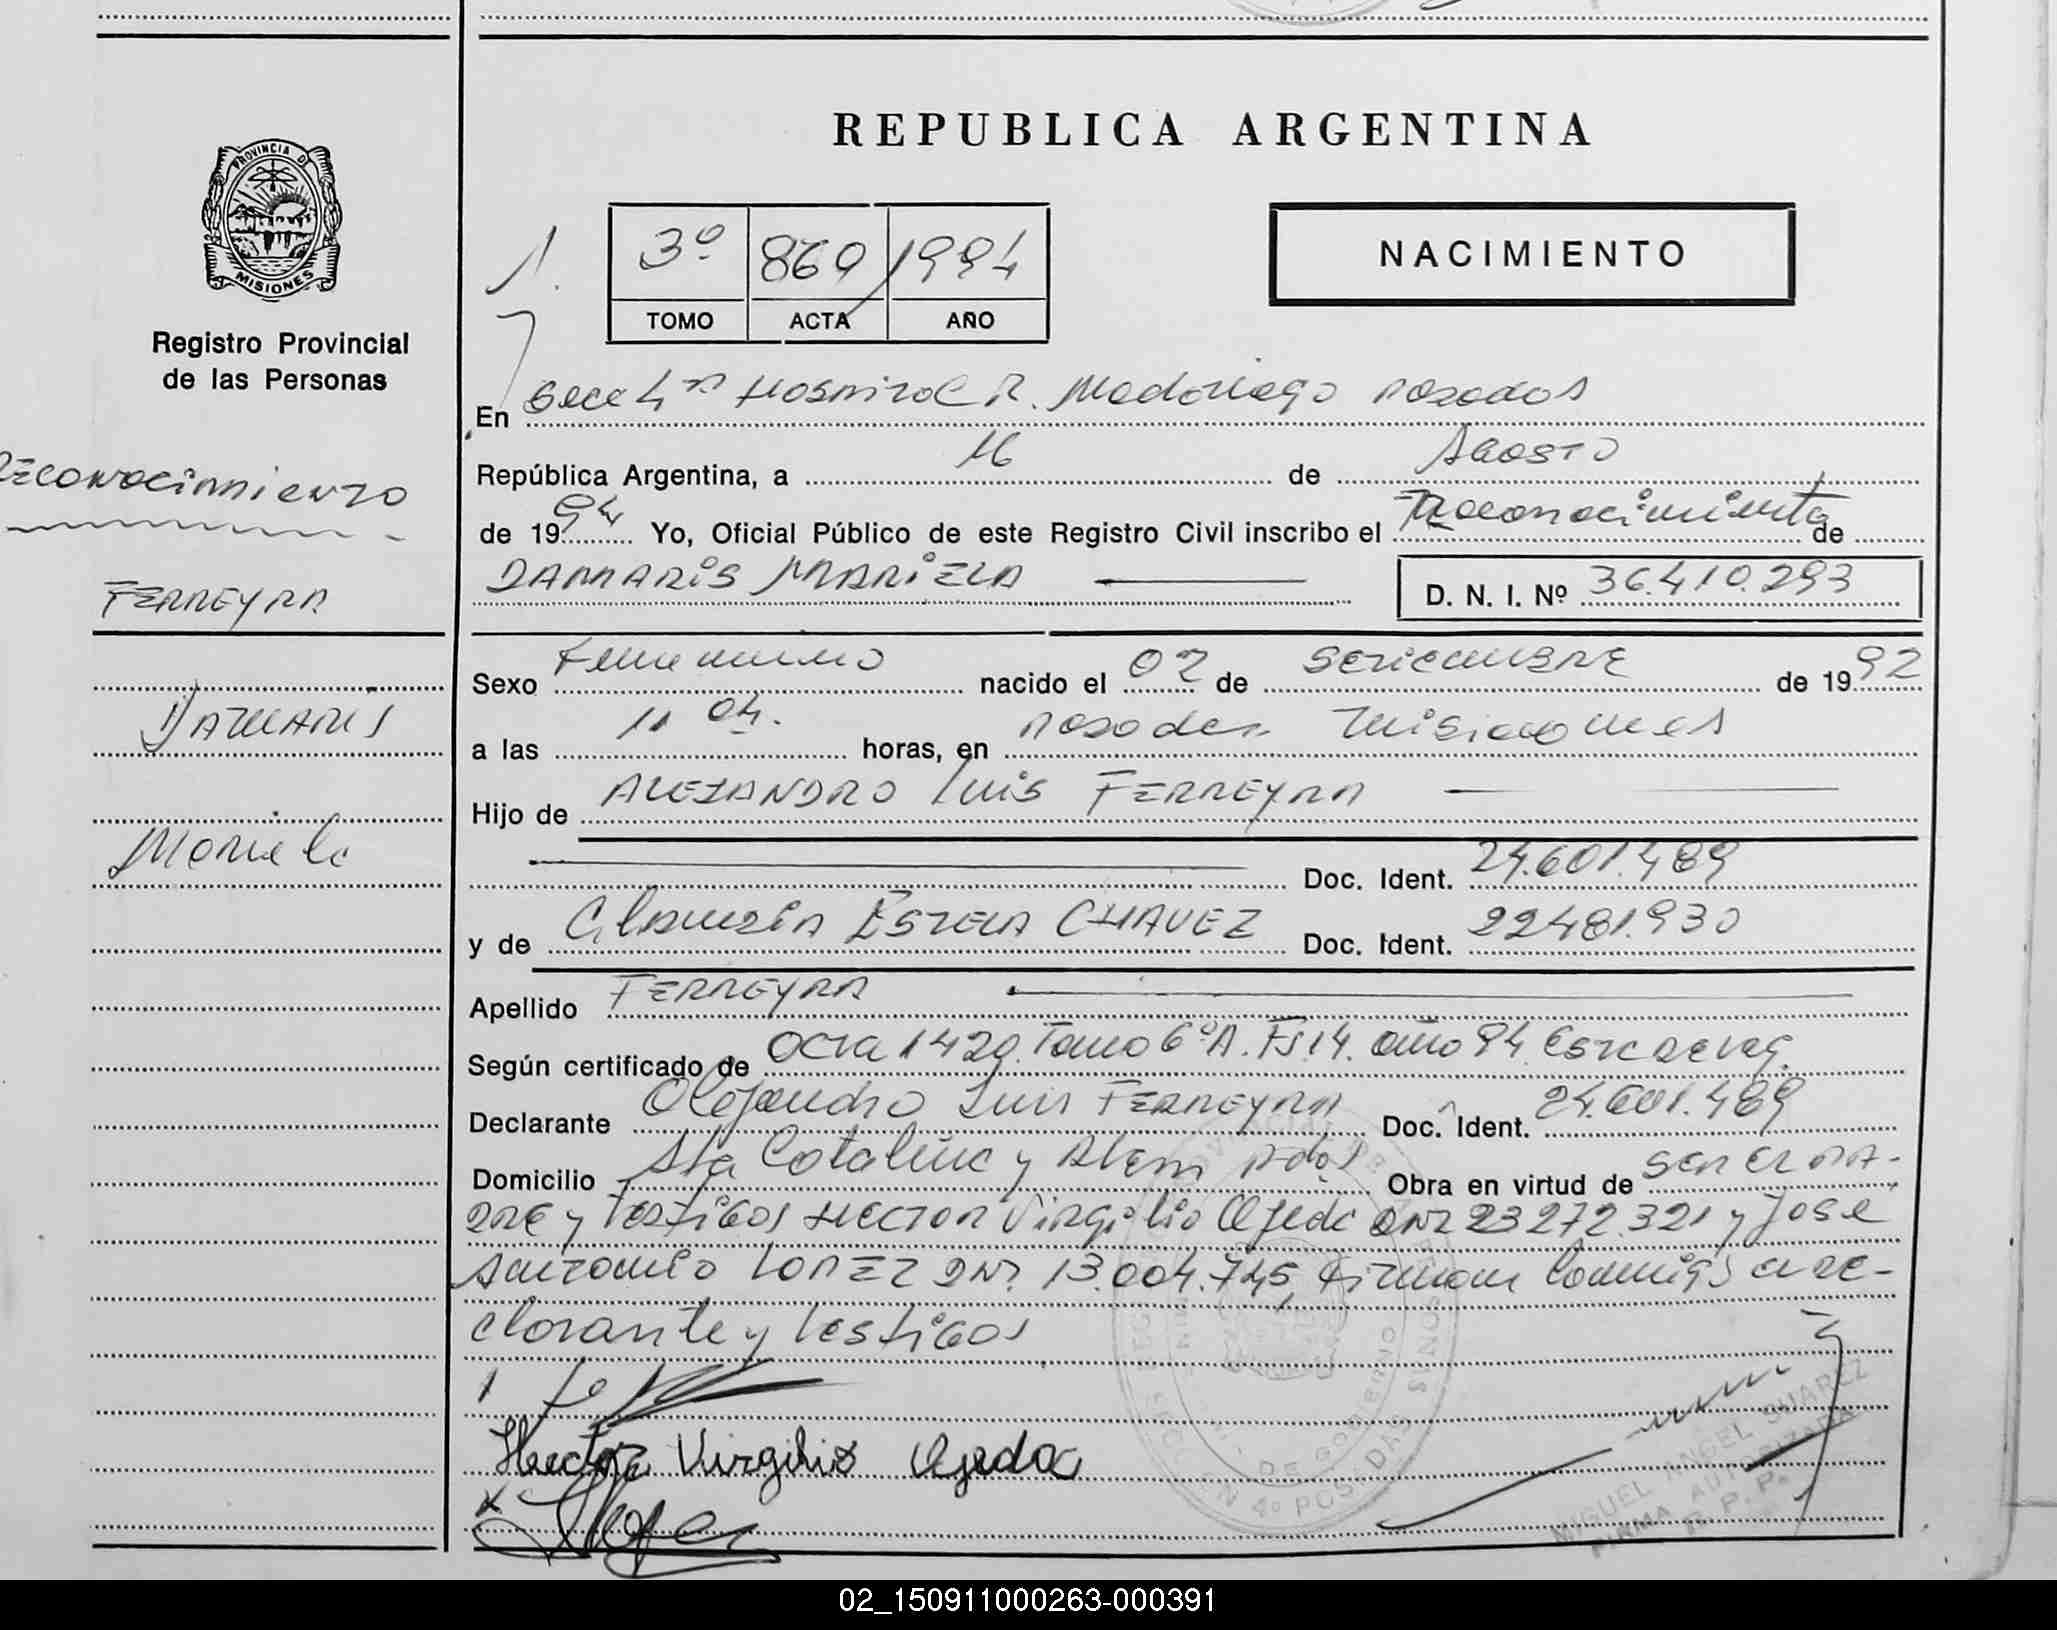 REPUBLICA ARGENTINA
PROVINCIA DE
MISIONES
Registro Provincial
de las Personas
3º 869 1994
TOMO ACTA AÑO
NACIMIENTO
En Secc 4ª Hospital R. Madariaga Posadas
República Argentina, a 16 de Agosto
de 1994 Yo, Oficial Público de este Registro Civil inscribo el Reconocimiento de
DAMARIS MARIELA D. N. I. Nº 36.410.293
Reconocimiento
FERREYRA
DAMARIS
Mariela
Sexo Femenino nacido el 02 de SETIEMBRE de 1992
a las horas, en Posadas Misiones
Hijo de ALEJANDRO Luis FERREYRA
Doc. Ident. 24.601.489
y de Claudia Estela CHAVEZ Doc. Ident. 22481.930
Apellido FERREYRA
Según certificado de Acta 1420. Tomo 6º A. Fs. 14. año 94
Declarante Alejandro Luis FERREYRA Doc. Ident. 24.601.489
Domicilio Sta Catalina y Alem Pdas Obra en virtud de ser el pa-
dre y testigos Hector Virgilio Ojeda DNI 23272.321 y Jose
Antonio LOPEZ DNI. 13.004.745, firman conmigo el de-
clarante y testigos
Hector Virgilio Ojeda
MIGUEL ANGEL SUAREZ
FIRMA AUTORIZADA
R. P. P.
02_150911000263-000391